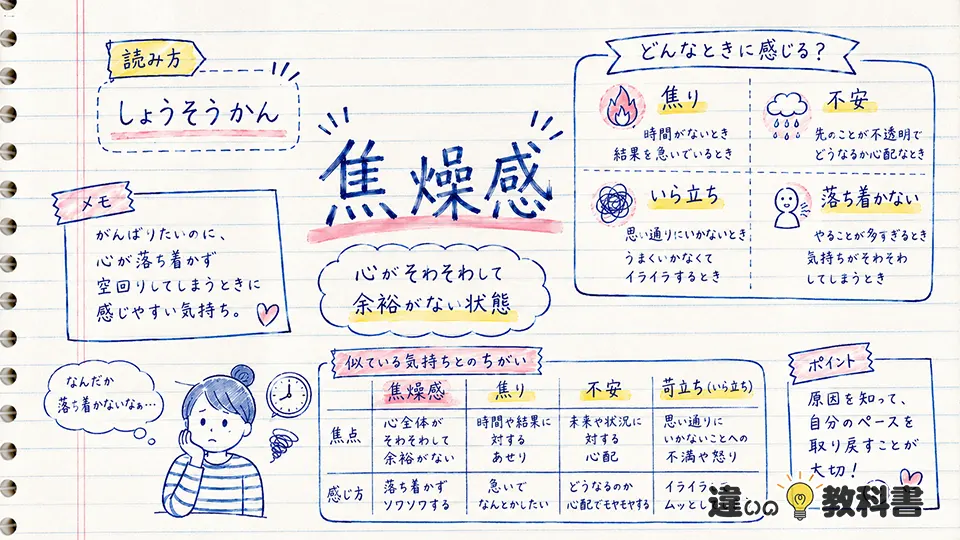 読み方
しょうそうかん
焦燥感
心がそわそわして
余裕がない状態
メモ
がんばりたいのに、
心が落ち着かず
空回りしてしまうときに
感じやすい気持ち。
なんだか
落ち着かないなぁ…
どんなときに感じる?
焦り
時間がないとき
結果を急いでいるとき
不安
先のことが不透明で
どうなるか心配なとき
いら立ち
思い通りにいかないとき
うまくいかなくて
イライラするとき
落ち着かない
やることが多すぎるとき
気持ちがそわそわ
してしまうとき
似ている気持ちとのちがい
焦燥感 焦り 不安 苛立ち(いら立ち)
焦点
心全体が
そわそわして
余裕がない
時間や結果に
対する
あせり
未来や状況に
対する
心配
思い通りに
いかないことへの
不満や怒り
感じ方
落ち着かず
ソワソワする
急いで
なんとかしたい
どうなるのか
心配でモヤモヤする
イライラ
ムッとし
ポイント
原因を知って、
自分のペースを
取り戻すことが
大切!
違いの教科書